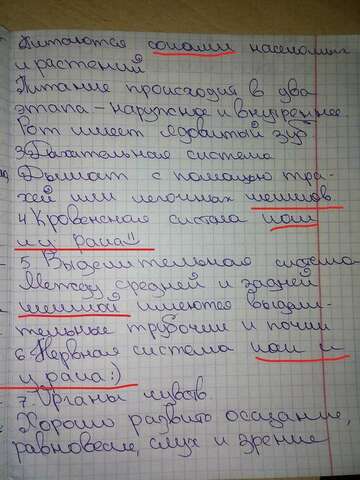 Питаются соками насекомых
и растений
Питание происходит в два
этапа – наружное и внутреннее.
Рот имеет ядовитый зуб
3 Дыхательная система
Дышат с помощью тра-
хей или легочных мешков
4 Кровеносная система как
и у рака!!
5. Выделительная система
Между средней и задней
кишкой имеются выдели-
тельные трубочки и почки
6 Нервная система как и
у рака:)
7 Органы чувств
Хорошо развито осязание,
равновесие, слух и зрение